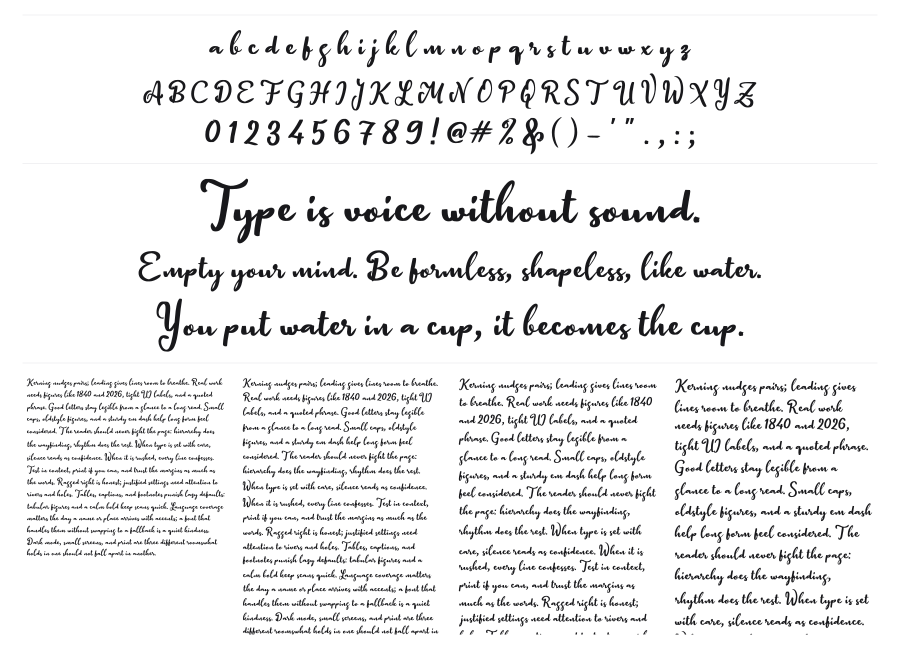 a b c d e f g h i j k l m n o p q r s t u v w x y z
A B C D E F G H I J K L M N O P Q R S T U V W X Y Z
0 1 2 3 4 5 6 7 8 9 ! @ # % & ( ) - ' " . , : ;
Type is voice without sound.
Empty your mind. Be formless, shapeless, like water.
You put water in a cup, it becomes the cup.
Kerning nudges pairs; leading gives lines room to breathe. Real work
needs figures like 1840 and 2026, tight UI labels, and a quoted
phrase. Good letters stay legible from a glance to a long read. Small
caps, oldstyle figures, and a sturdy em dash help long form feel
considered. The reader should never fight the page: hierarchy does
the wayfinding, rhythm does the rest. When type is set with care,
silence reads as confidence. When it is rushed, every line confesses.
Test in context, print if you can, and trust the margins as much as
the words. Ragged right is honest; justified settings need attention to
rivers and holes. Tables, captions, and footnotes punish lazy defaults:
tabular figures and a calm bold keep scans quick. Language coverage
matters the day a name or place arrives with accents; a font that
handles them without swapping to a fallback is a quiet kindness.
Dark mode, small screens, and print are three different roomswhat
holds in one should not fall apart in another.
Kerning nudges pairs; leading gives lines room to breathe.
Real work needs figures like 1840 and 2026, tight UI
labels, and a quoted phrase. Good letters stay legible
from a glance to a long read. Small caps, oldstyle
figures, and a sturdy em dash help long form feel
considered. The reader should never fight the page:
hierarchy does the wayfinding, rhythm does the rest.
When type is set with care, silence reads as confidence.
When it is rushed, every line confesses. Test in context,
print if you can, and trust the margins as much as the
words. Ragged right is honest; justified settings need
attention to rivers and holes. Tables, captions, and
footnotes punish lazy defaults: tabular figures and a
calm bold keep scans quick. Language coverage matters
the day a name or place arrives with accents; a font that
handles them without swapping to a fallback is a quiet
kindness. Dark mode, small screens, and print are three
different roomswhat holds in one should not fall apart in
Kerning nudges pairs; leading gives lines room
to breathe. Real work needs figures like 1840
and 2026, tight UI labels, and a quoted
phrase. Good letters stay legible from a
glance to a long read. Small caps, oldstyle
figures, and a sturdy em dash help long form
feel considered. The reader should never fight
the page: hierarchy does the wayfinding,
rhythm does the rest. When type is set with
care, silence reads as confidence. When it is
rushed, every line confesses. Test in context,
print if you can, and trust the margins as
much as the words. Ragged right is honest;
justified settings need attention to rivers and
Kerning nudges pairs; leading gives
lines room to breathe. Real work
needs figures like 1840 and 2026,
tight UI labels, and a quoted phrase.
Good letters stay legible from a
glance to a long read. Small caps,
oldstyle figures, and a sturdy em dash
help long form feel considered. The
reader should never fight the page:
hierarchy does the wayfinding,
rhythm does the rest. When type is set
with care, silence reads as confidence.